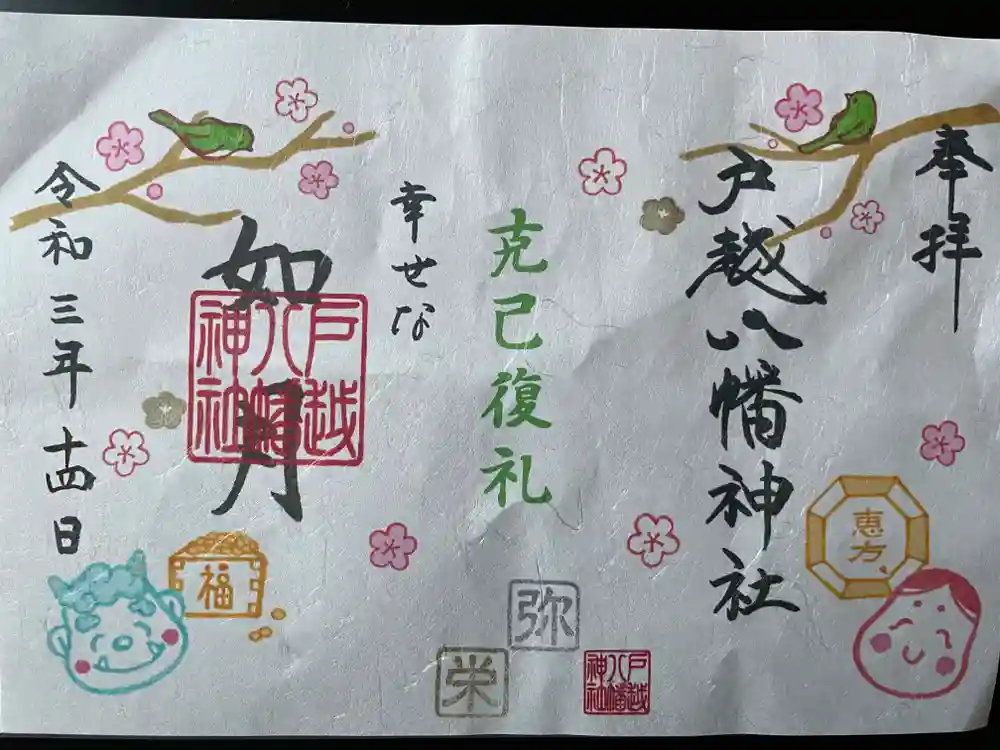 奉拝
戸越八幡神社
恵方
克己復礼
弥
栄
戸越
八幡
神社
幸せな
如月
戸越
八幡
神社
令和三年十四日
福